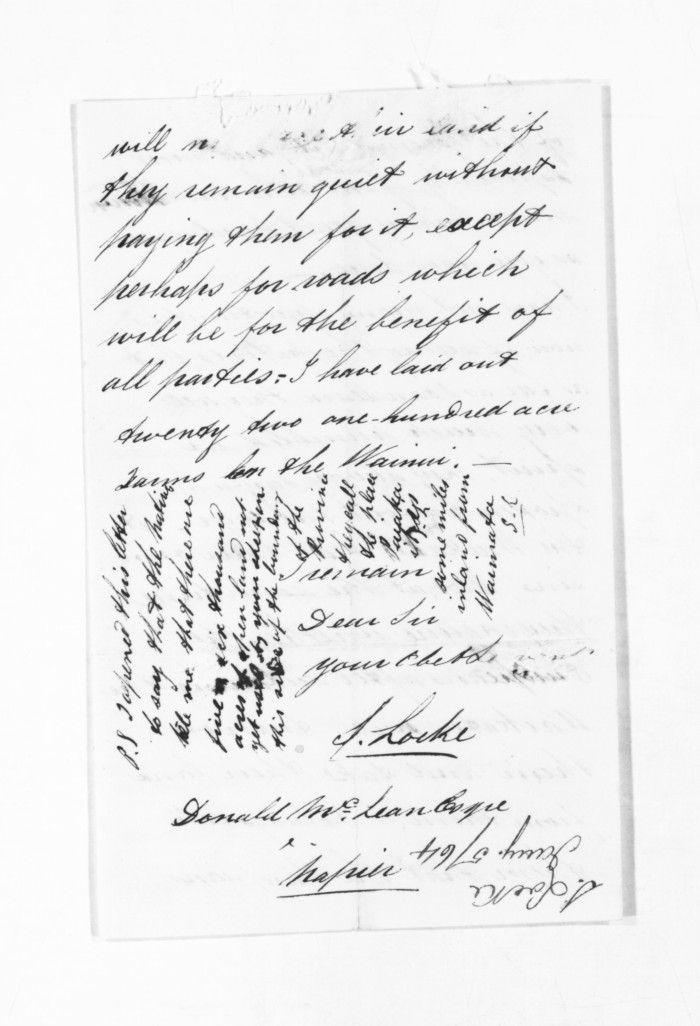 will n
they remain quiet without
paying them for it, except
perhaps for roads which
will be for the benefit of
all parties = I have laid out
twenty two one-hundred acre
farms on the Wainui. —
I remain
Dear Sir
your Obedt
S. Locke
Donald McLean Esqre
Napier
P.S I opened this letter
to say that the natives
tell me that there are
five or six thousand
acres of open land not
yet used by your sheep on
this side of the boundary
of the
Province
they call
the place
some miles
inland from
Waimata
S. L
S. Locke
Jany 5/64